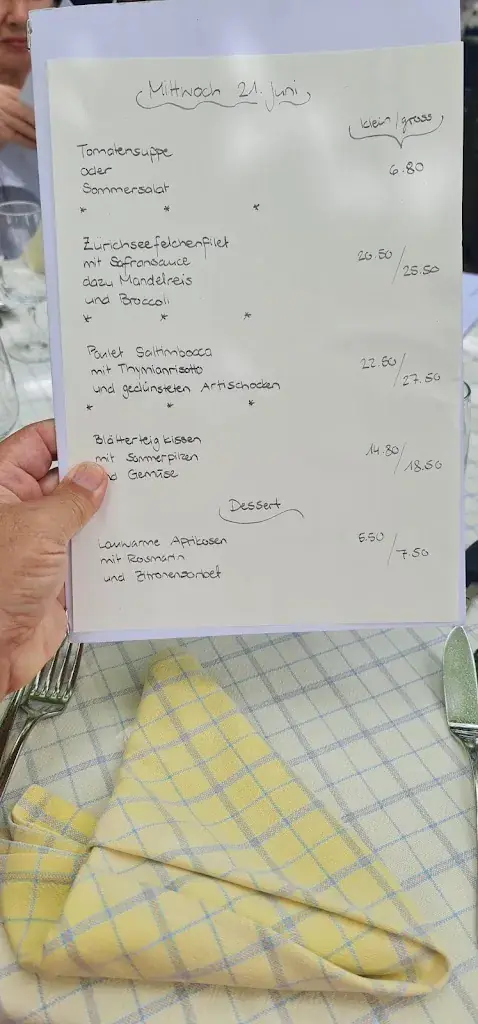 Mittwoch 21. Juni
klein/gross
Tomatensuppe
oder 6.80
Sommersalat
* * *
Zürichseefelchenfilet
mit Safransauce 20.50/25.50
dazu Mandelreis
und Broccoli
* * *
Poulet Saltimbocca
mit Thymianrisotto 22.50/27.50
und gedünsteten Artischocken
* * *
Blätterteigkissen
mit Sommerpilzen 14.80/18.50
nd Gemüse
Dessert
Lauwarme Aprikosen 5.50/7.50
mit Rosmarin
und Zitronensorbet